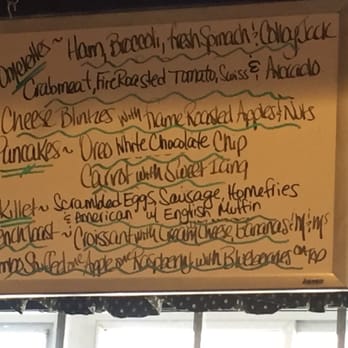 Omelettes ~ Ham, Broccoli, fresh Spinach & Colby Jack
Crabmeat, Fire Roasted Tomato, Swiss & Avocado
Cheese Blintzes with Roasted Apples & Nuts
Pancakes ~ Oreo White Chocolate Chip
Carrot with Sweet Icing
killet ~ Scrambled Eggs, Sausage, Homefries
& American w/ English Muffin
ench Toast ~ Croissant with Cream Cheese Bananas & M&M's
Stuffed Apple Raspberry with Blueberries on Top